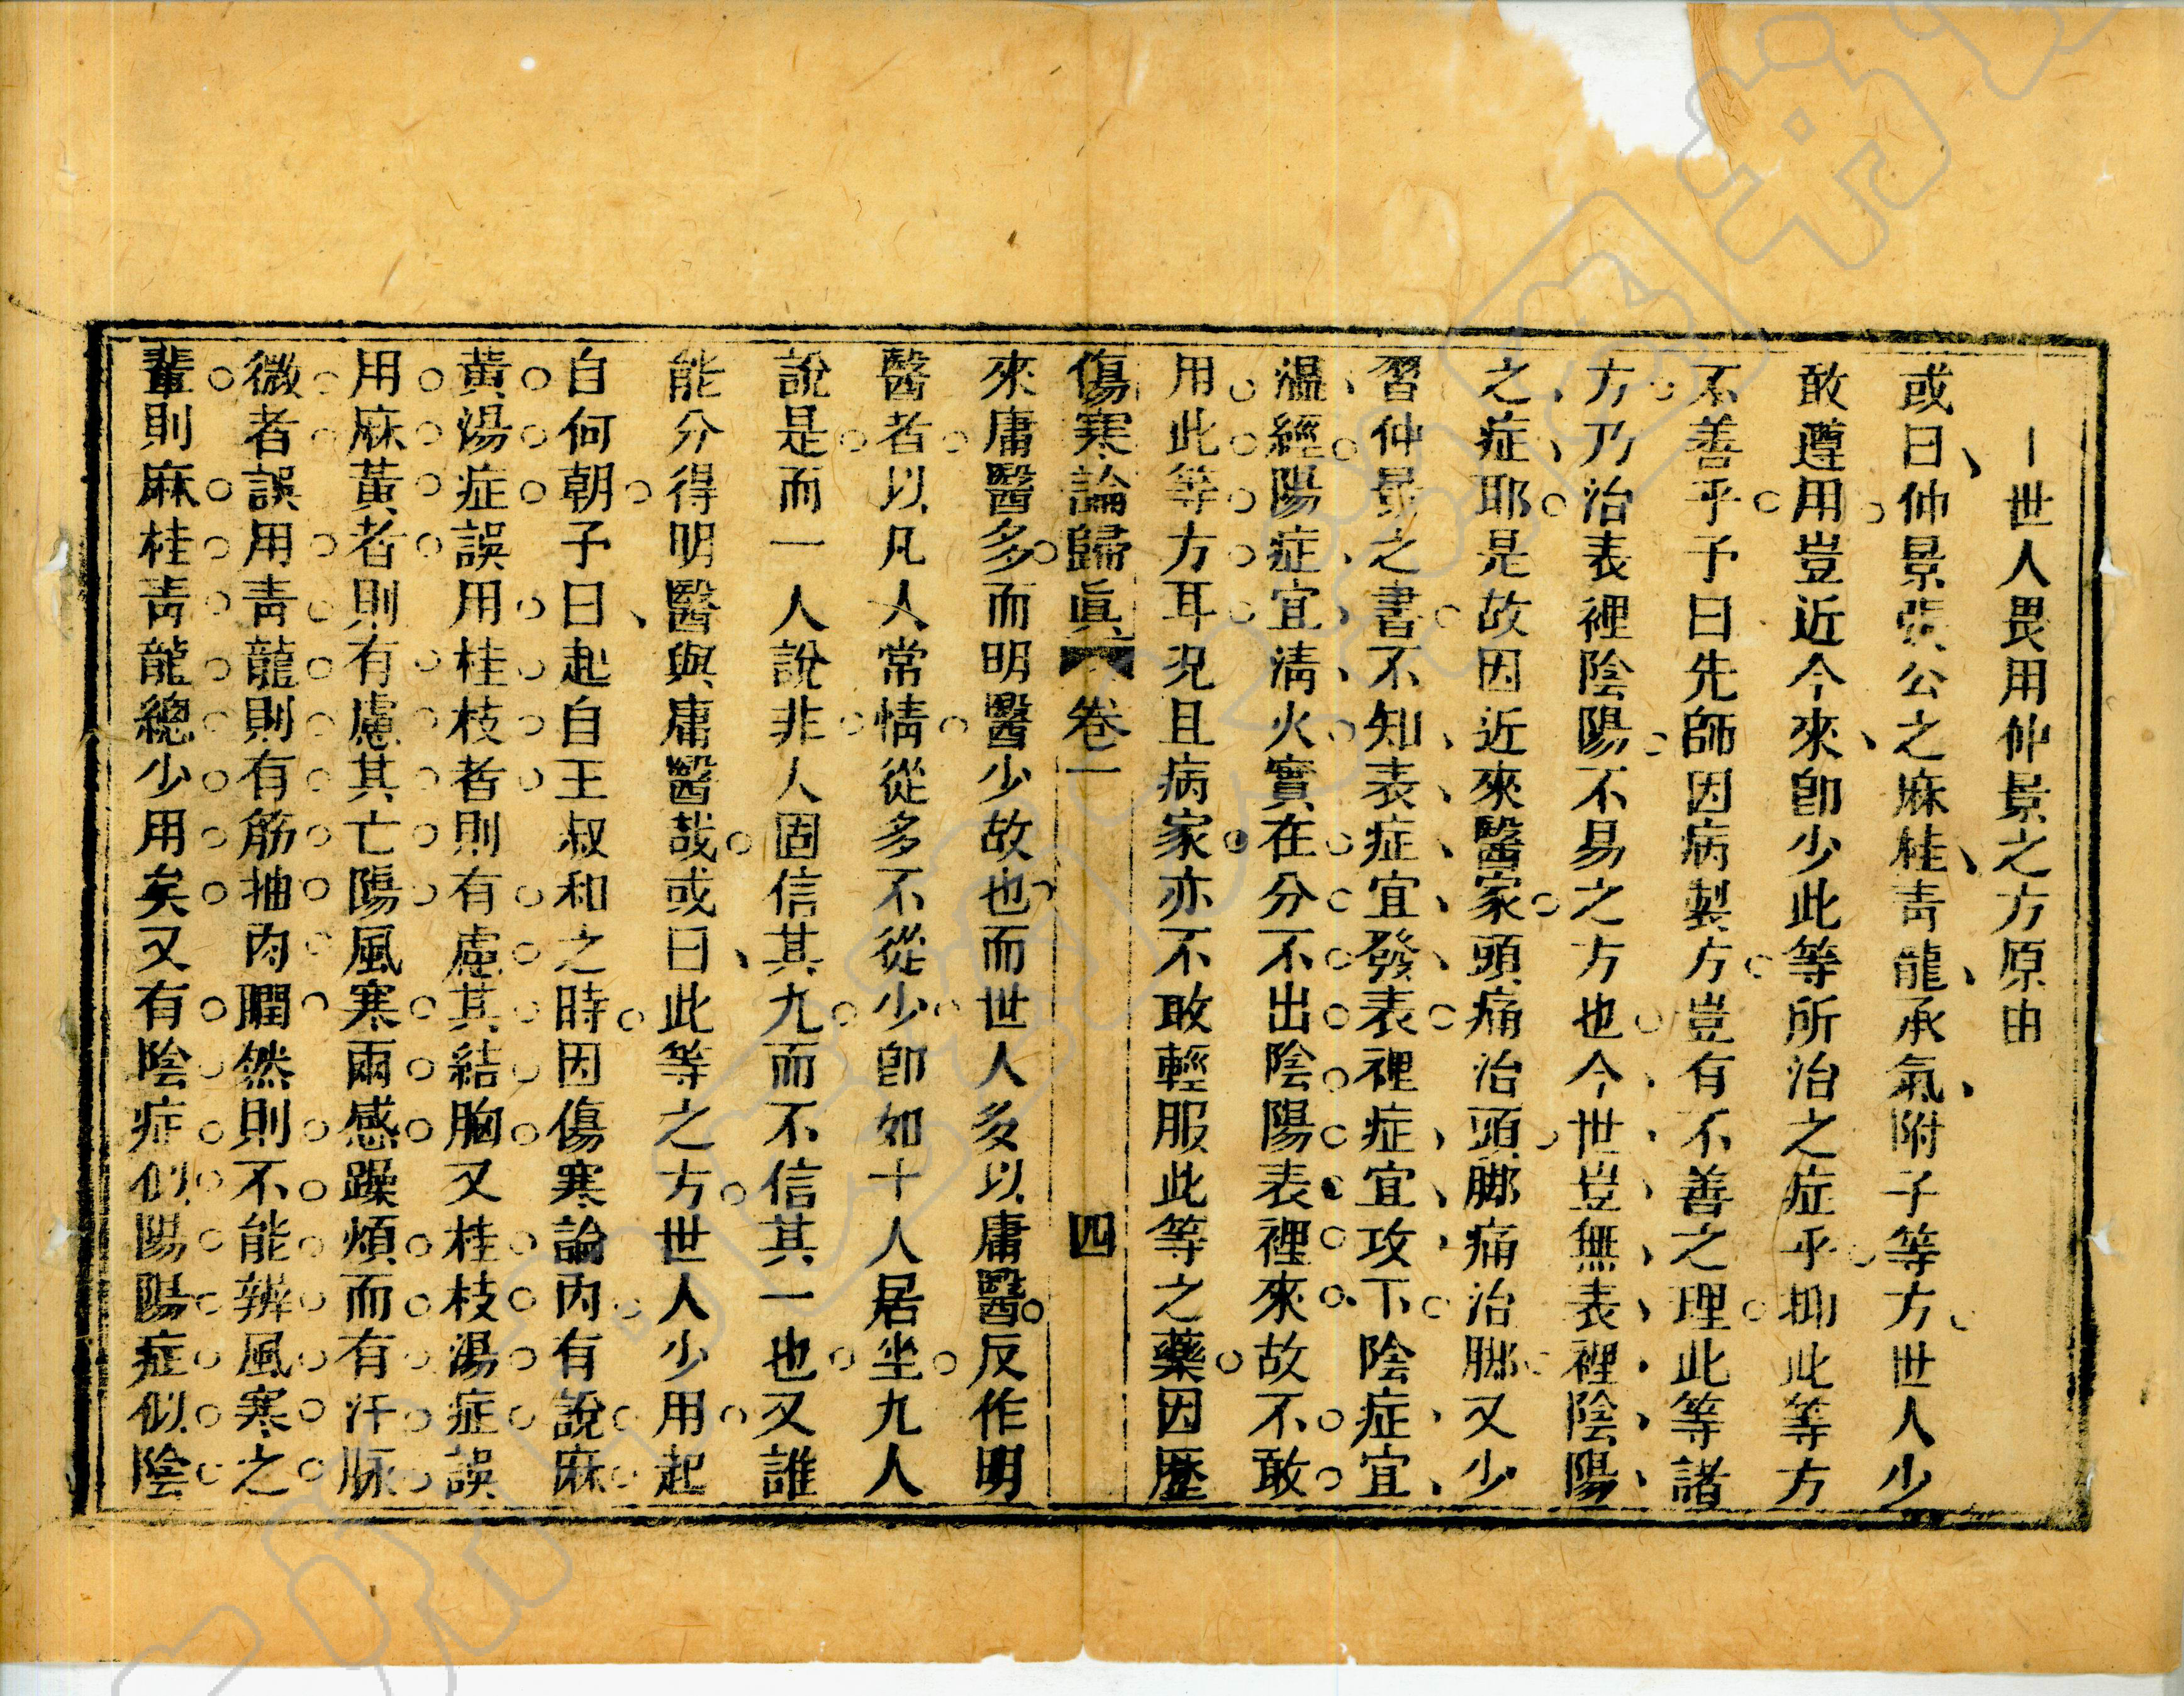 一世人畏用仲景之方原由
或曰仲景張公之麻桂青龍承氣附子等方世人少
敢遵用豈近今來卽少此等所治之症乎抑此等方
不善乎予曰先師因病製方豈有不善之理此等諸
方乃治表裡陰陽不易之方也今世豈無表裡陰陽
之症耶是故因近來醫家頭痛治頭脚痛治脚又少
習仲景之書不知表症宜發表裡症宜攻下陰症宜
溫經陽症宜淸火實在分不出陰陽表裡來故不敢
用此等方耳况且病家亦不敢輕服此等之藥因歷
傷寒論歸眞 卷一 四
來庸醫多而明醫少故也而世人多以庸醫反作明
醫者以凡人常情從多不從少卽如十人居坐九人
說是而一人說非人固信其九而不信其一也又誰
能分得明醫與庸醫哉或曰此等之方世人少用起
自何朝予曰起自王叔和之時因傷寒論內有說麻
黃湯症誤用桂枝者則有慮其結胸又桂枝湯症誤
用麻黃者則有慮其亡陽風寒兩感躁煩而有汗脉
微者誤用靑龍則有筋抽肉瞤然則不能辨風寒之
輩則麻桂靑龍總少用矣又有陰症似陽陽症似陰